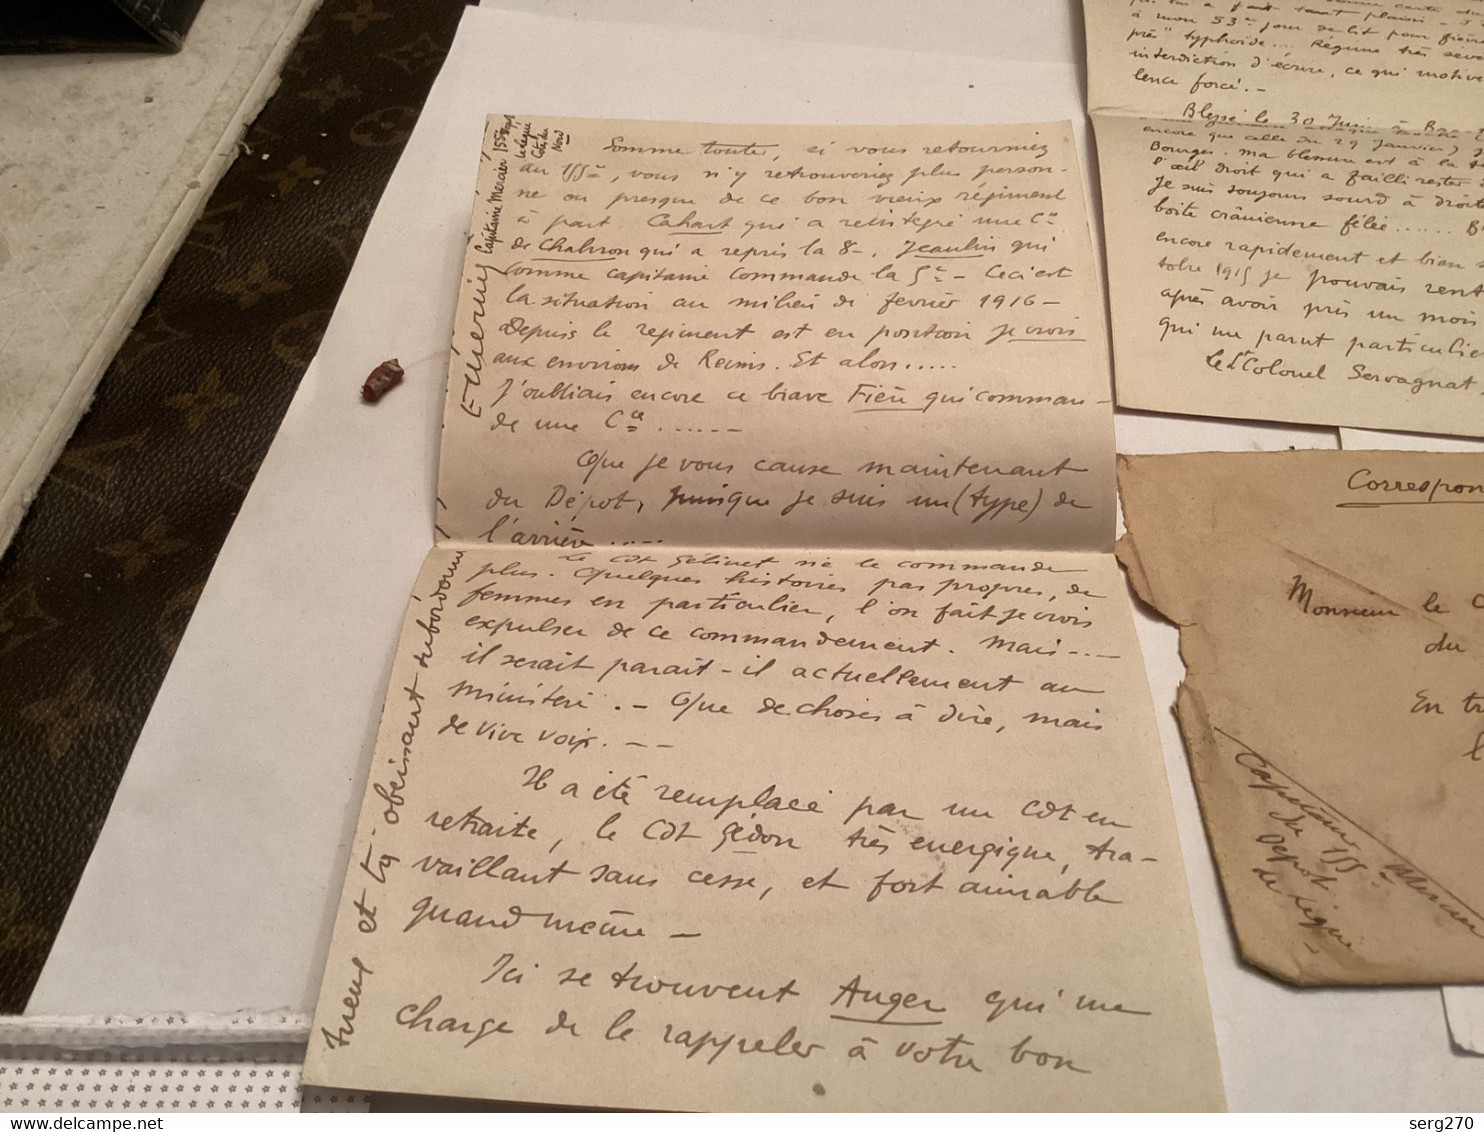 Somme toute, si vous retourniez
au 155e, vous n'y retrouveriez plus person-
ne ou presque de ce bon vieux régiment
à part. Cahart qui a reintegré une Cie
de Chabron qui a repris la 8-, Jeaulin qui
comme capitaine commande la 5e - Ceci est
la situation au milieu de fevrier 1916 -
Depuis le regiment est en position je crois
aux environs de Reims. Et alors.....
J'oubliais encore ce brave Fiéu qui comman-
de une Cie ......
Que je vous cause maintenant
du Dépot, puisque je suis un (type) de
l'arrière .....
Le Cdt Gélinet ne le commande
plus. Quelques histoires pas propres, de
femmes en particulier, l'on fait je crois
expulser de ce commandement. Mais ....
il serait parait-il actuellement au
ministère. - Que de choses à dire, mais
de vive voix. - -
Il a été remplacé par un Cdt en
retraite, le Cdt Gédon très energique, tra-
vaillant sans cesse, et fort aimable
quand même -
Ici se trouvent Auger qui me
charge de le rappeler à votre bon
et très obéissant subordonné
Capitaine Mercier 155e
Nord
fait tant plaisir
à mon 53e jour de lit pour fièvre
typhoïde.... Régime très sévè
interdiction d'écrire, ce qui motive
lence forcé. -
Blessé le 30 Juin à
encore que celle du 29 Janvier)
Bourges. Ma blessure est à la
l'œil droit qui a failli rester
Je suis toujours sourd à droite
boite crânienne fêlée......
encore rapidement et bien
tobre 1915 je pouvais rent
après avoir pris un mois
qui me parut particulie
Le Lt Colonel Servagnat
Correspon
Monsieur le C
du
En tr
Capitaine Mercier
155e
Du
Dépot
de